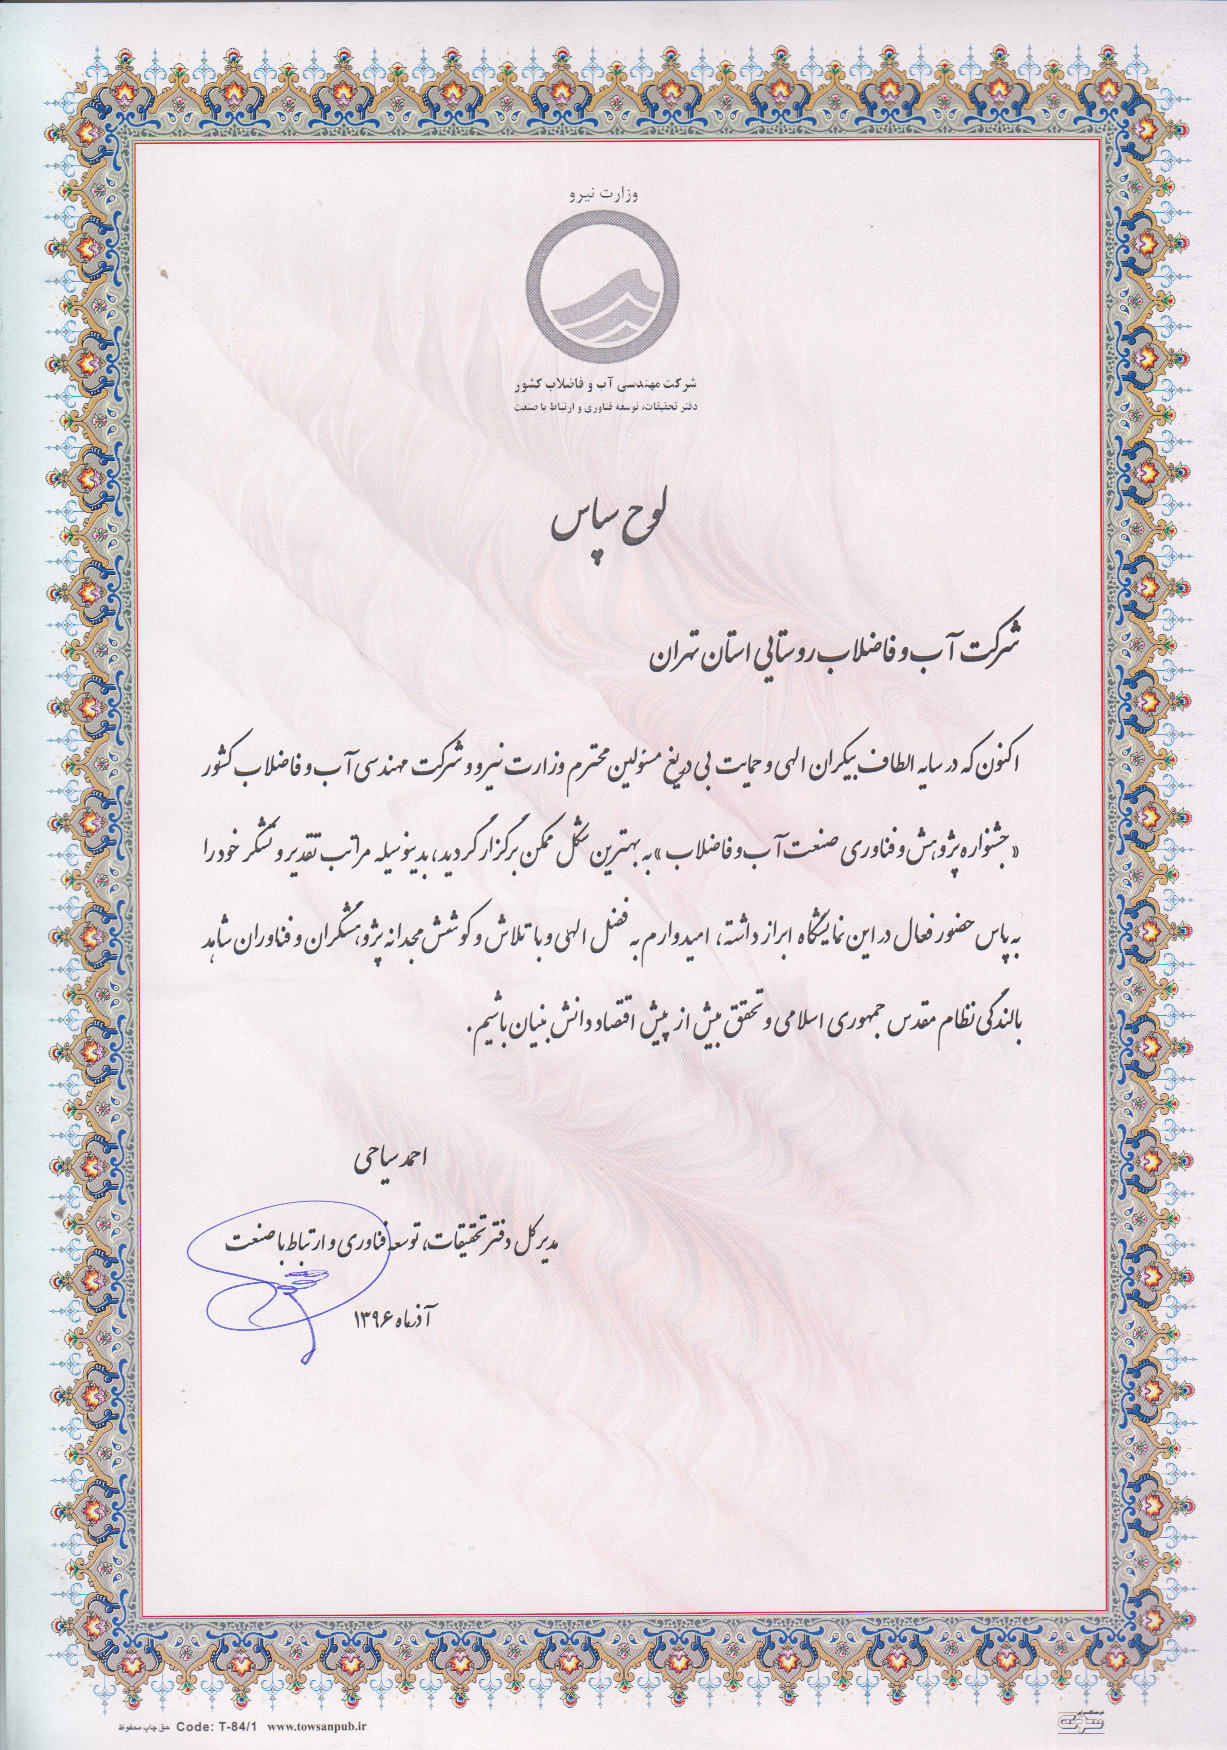 وزارت نیرو
شرکت مهندسی آب و فاضلاب کشور
دفتر تحقیقات، توسعه فناوری و ارتباط با صنعت
لوح سپاس
شرکت آب و فاضلاب روستایی استان تهران
اکنون که در سایه الطاف بیکران الهی و حمایت بی دریغ مسئولین محترم وزارت نیرو و شرکت مهندسی آب و فاضلاب کشور
«جشنواره پژوهش و فناوری صنعت آب و فاضلاب» به بهترین شکل ممکن برگزار گردید، بدینوسیله مراتب تقدیر و تشکر خود را
به پاس حضور فعال در این نمایشگاه ابراز داشته، امیدوارم به فضل الهی و با تلاش و کوشش مجدانه پژوهشگران و فناوران شاهد
بالندگی نظام مقدس جمهوری اسلامی و تحقق بیش از پیش اقتصاد دانش بنیان باشیم.
احمد سیاحی
مدیرکل دفتر تحقیقات، توسعه فناوری و ارتباط با صنعت
آذرماه ۱۳۹۶
حق چاپ محفوظ Code: T-84/1 www.towsanpub.ir